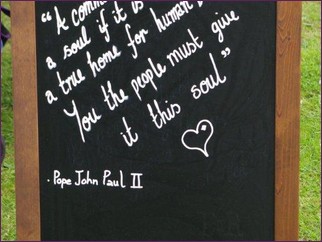 "A comm
a soul if it is
a true home for human b
You the people must give
it this soul"
- Pope John Paul II